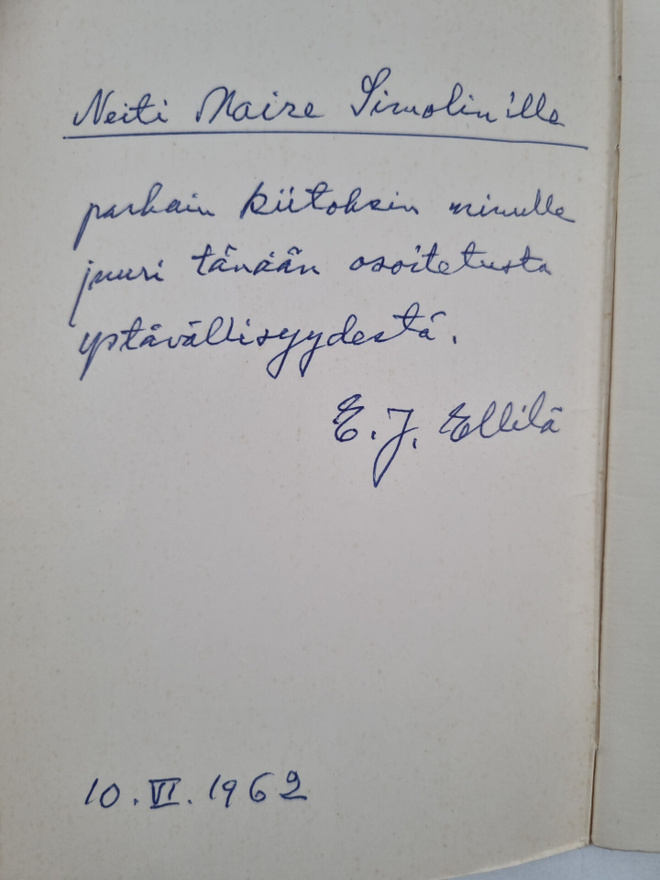 Neiti Maire Simolin'ille
parhain kiitoksin minulle
juuri tänään osoitetusta
ystävällisyydestä.
E. J. Ellilä
10.VI.1962